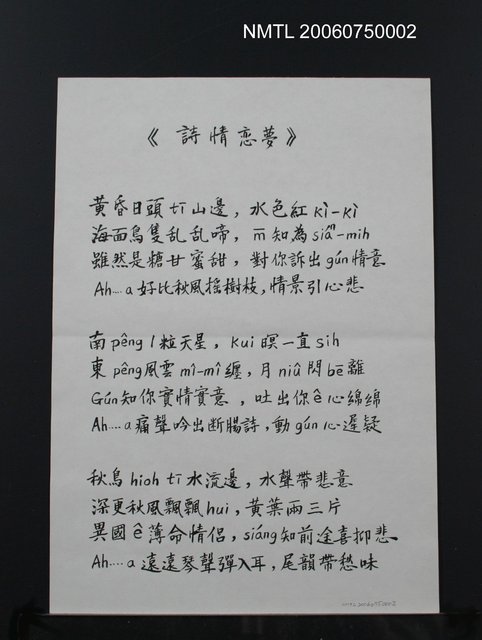 NMTL 20060750002
《詩情恋夢》
黃昏日頭 tī 山邊，水色紅 kì-kì
海面鳥隻乱乱啼，m̄ 知為 siáⁿ-mih
雖然是糖甘蜜甜，對你訴出 gún 情意
Ah…. a 好比秋風搖樹枝，情景引心悲
南 pêng 1 粒天星，Kui 暝一直 sih
東 pêng 風雲 mî-mî 纏，月 niû 閃 bē 離
Gún 知你實情實意，吐出你 ê 心綿綿
Ah…. a 痛聲吟出断腸詩，動 gún 心遲疑
秋鳥 hioh tī 水流邊，水聲帶悲意
深更秋風飄飄 hui，黃葉兩三片
異國 ê 薄命情侶，siáng 知前途喜抑悲
Ah…. a 遠遠琴聲彈入耳，尾韻帶愁味
NMTL20060750002